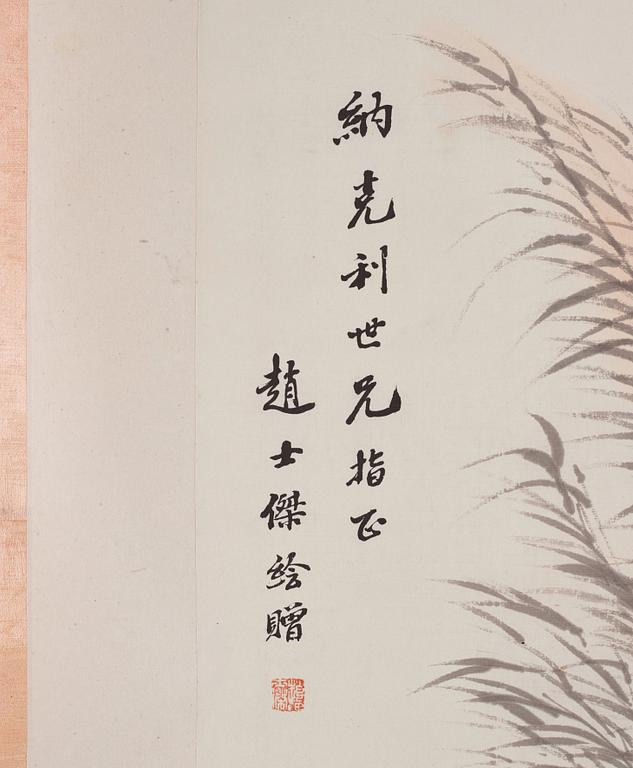 納克利世兄指正
趙士傑絵贈